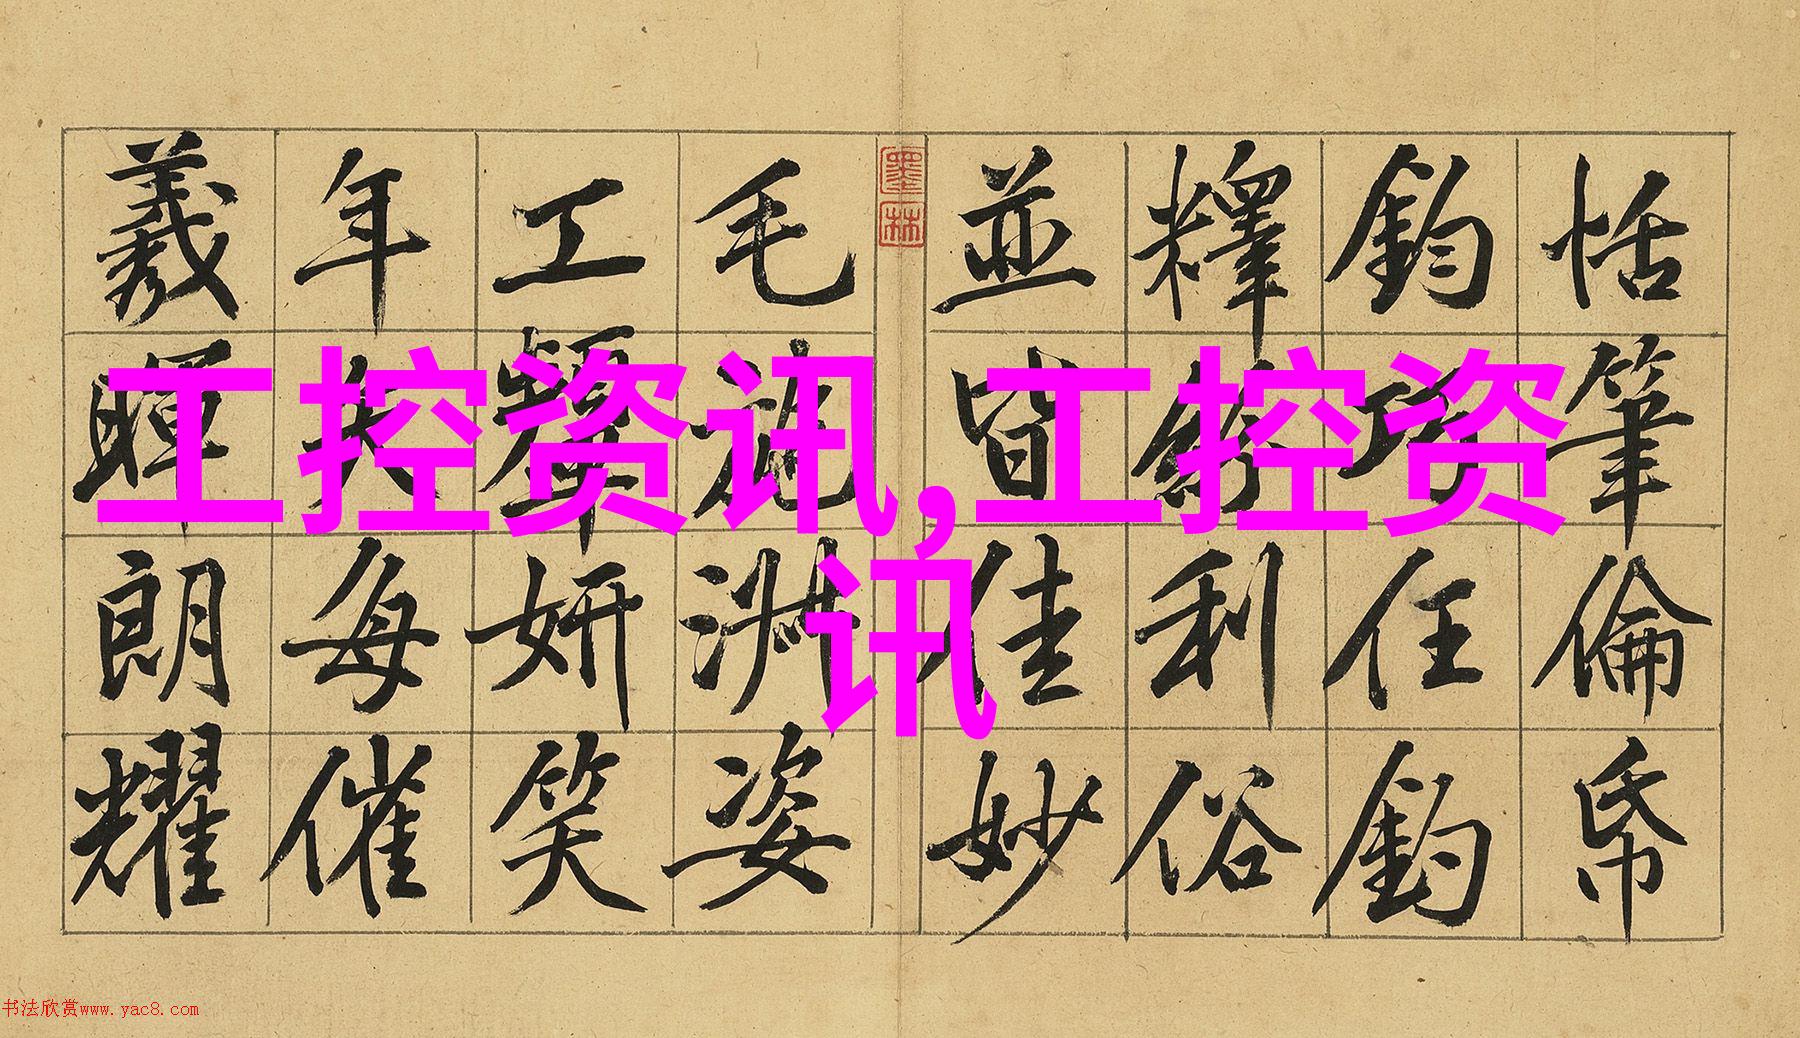 恬筆倫帋
鈞巧任釣
釋紛利俗
並皆佳妙
墨林
毛施淑姿
工顰妍笑
年矢每催
羲暉朗耀
工控资讯,工控资
讯
书法欣赏www.yac8.com